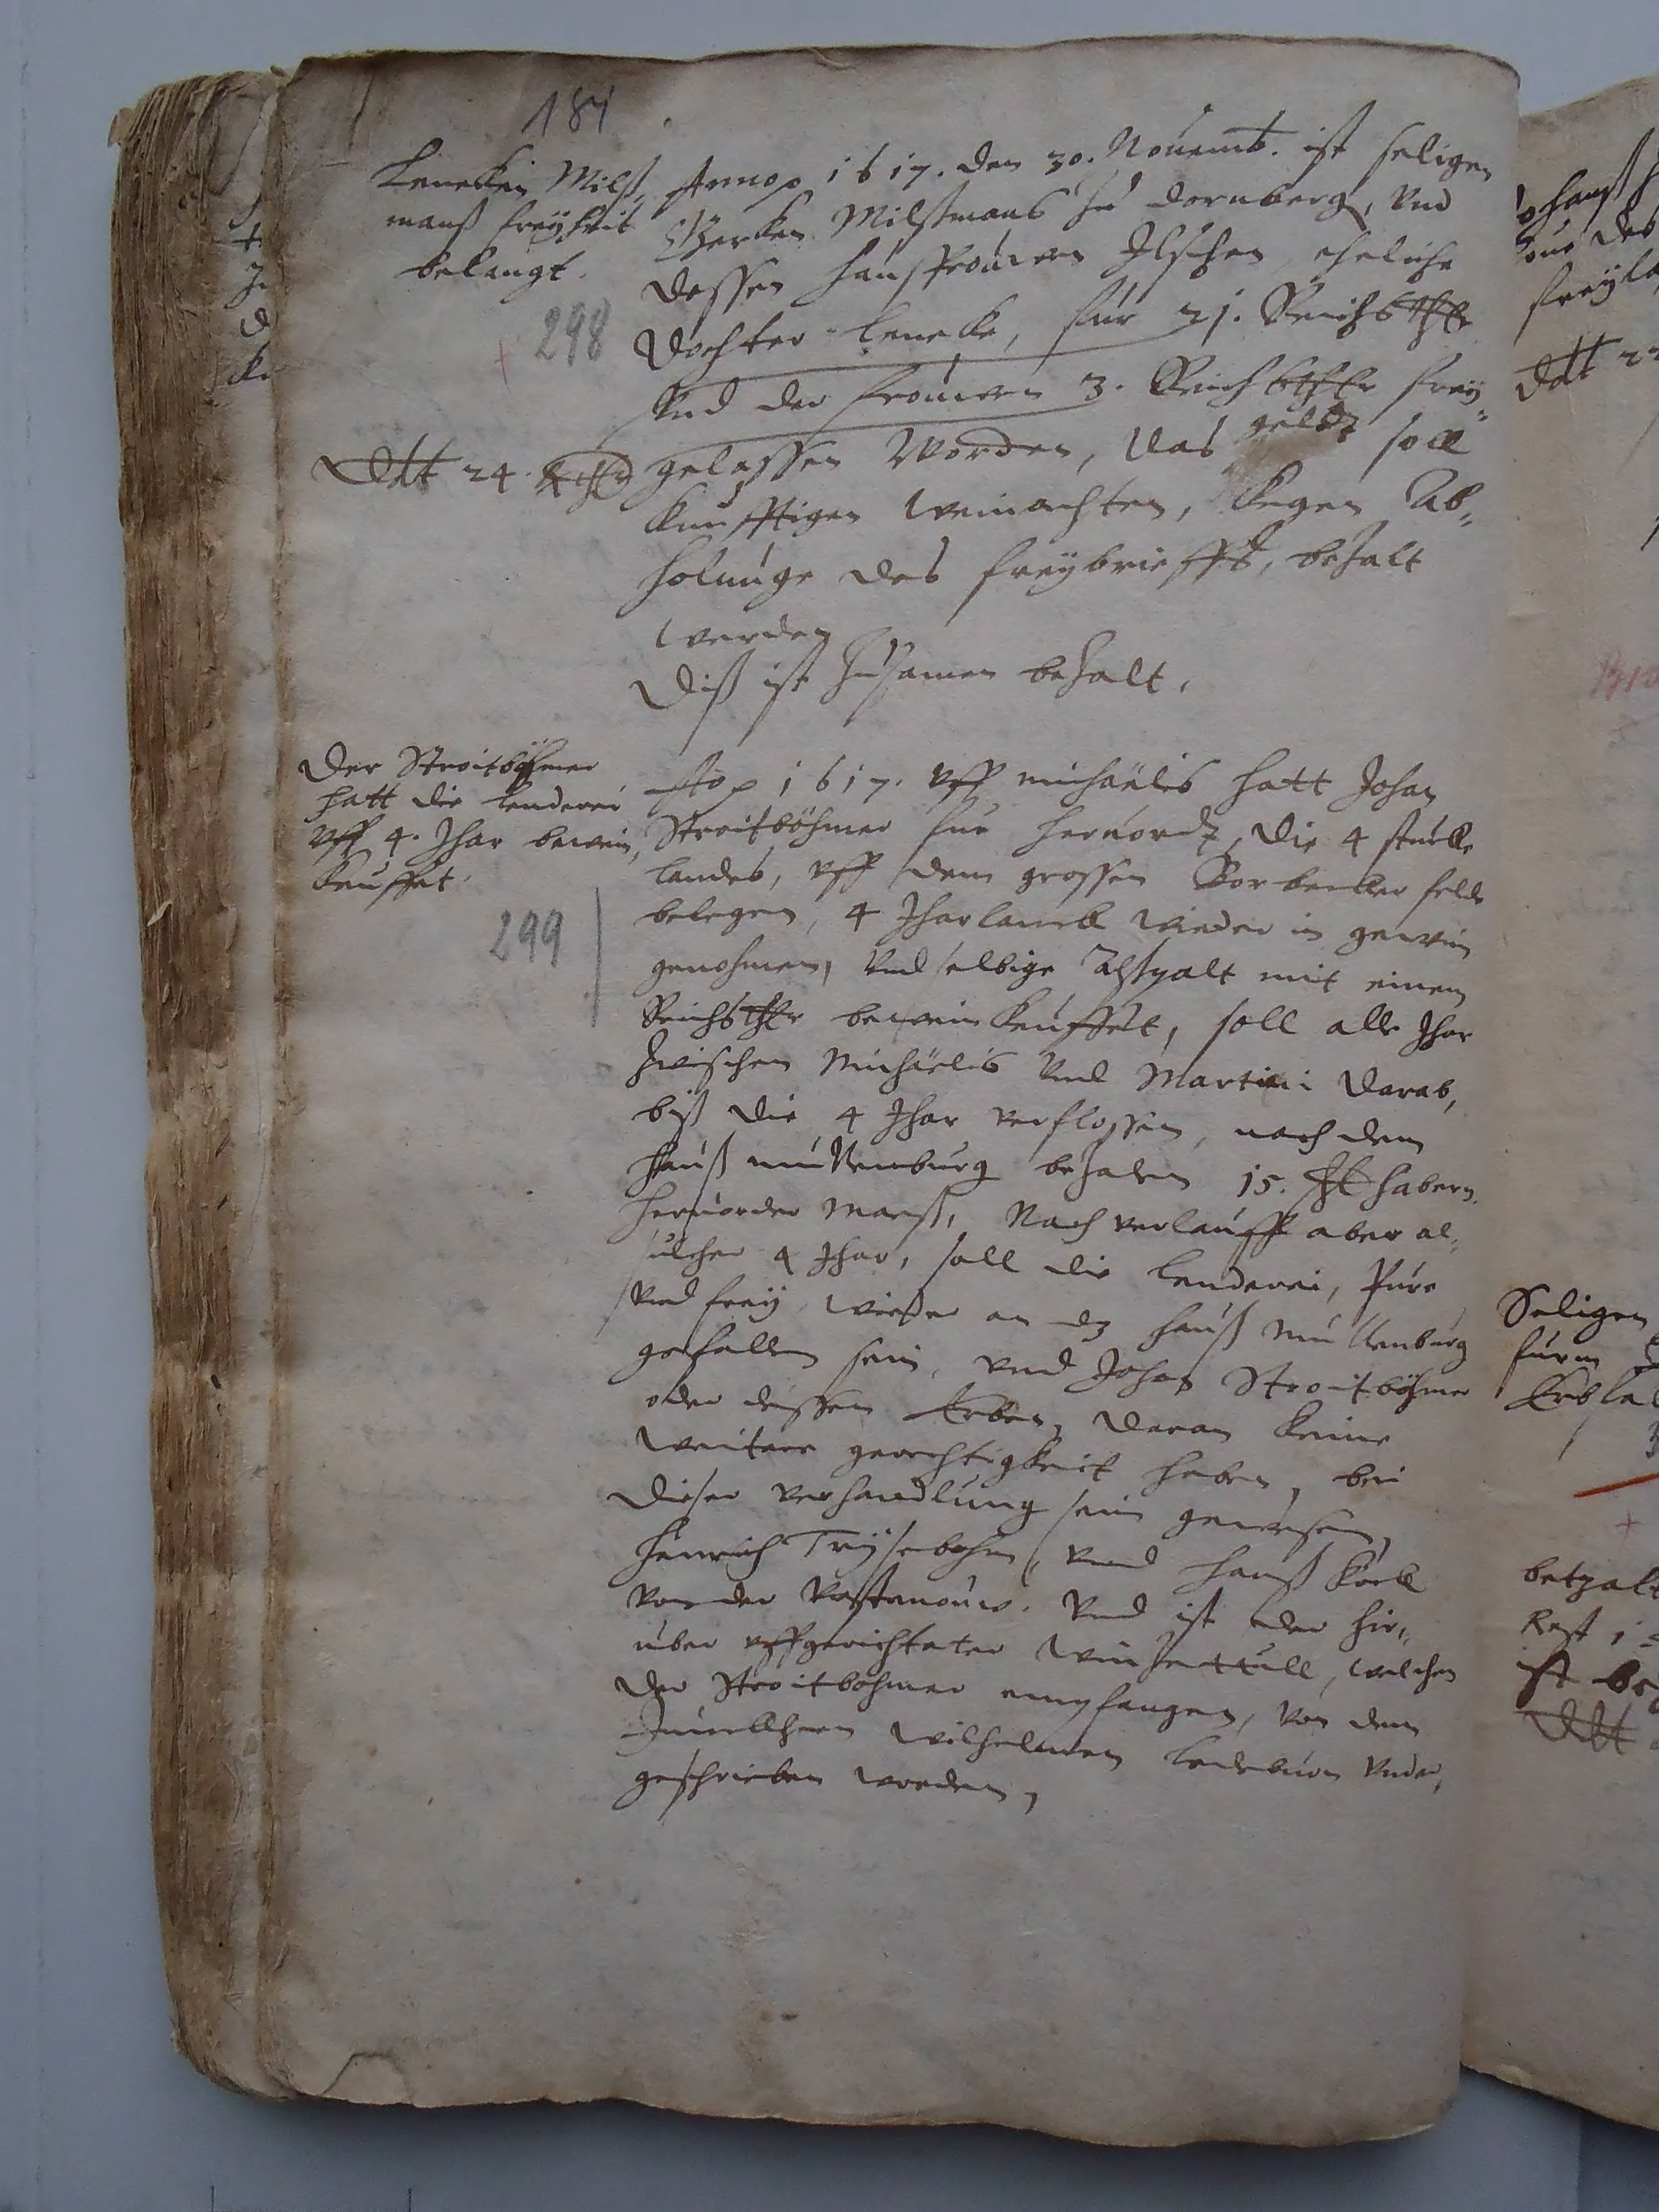 184
Leneken Milß,
manß freyheit
belangt.
298
Dtt 24. Rthlr
Annop 1617. den 30. Nouemb. ist seligen
Gerken Milßmans zu dornberg, vnd
dessen haussfrouwen Ilschen eheliche
dochter Leneke, fur 21. Reichsthlr
vnd der frouwen 3. Reichsthlr frey
gelassen worden, das geldt soll
kunfftigen weinachten, kegen Ab„
holunge des freybrieffs, bezalt
werden
diß ist zusamen bezalt.
Der Stroitböhmer
hatt die lenderei
vff 4. Jhar bewein,
kauffet.
299
Aop 1617. vff michaëlis hatt Johan
Stroitböhmer fur heruordt, die 4 stucke
landes, vff dem grossen felde
belegen, 4 Jharlanck wieder in gewin
genohmen, vnd selbige mit einem
Reichsthlr beweinkauffet, soll alle Jhar
zwischen Michaëlis vnd Martini darab,
biß die 4 Jhar verflossen, nach dem
hauß mullenburg bezalen 15. habern
heruorder maeß, Nach verlauff aber al„
sulcher 4 Jhar, soll die lenderei, Pure
vnd frey wieder an dz hauß mullenburg
gefallen sein, vnd Johan Stroitböhmer
oder dessen Erben, daran keine
weitere gerechtigkeit haben, bei
dieser verhandlung sein gewesen,
Henrich vnd hanß Koell
von der vnd ist der hir„
uber vffgerichteter winzettull, welchen
der Stroitbohmer empfangen, von dem
Junckhern Wilhelmen Ledeburen vnder,
geschrieben worden,